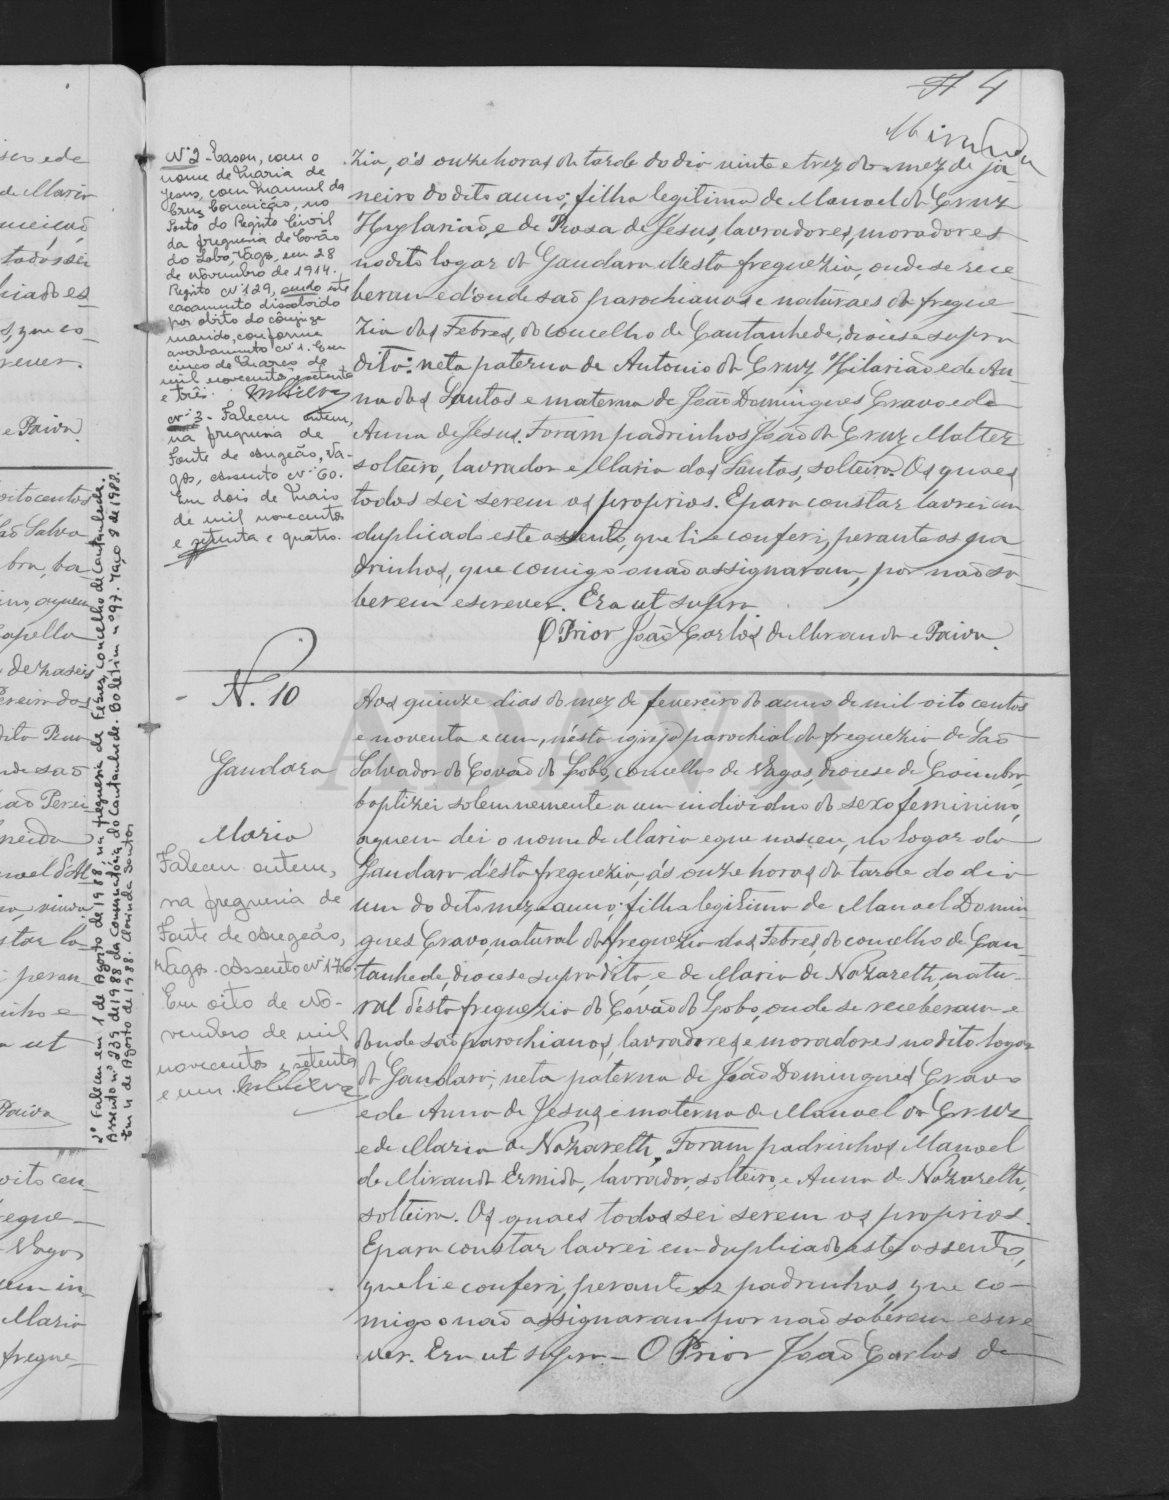 # 4
Miranda
Nº 2 - Casou, com o
nome de Maria de
Jesus, com Manuel da
Cruz Conceição, no
Posto do Registo Civil
da freguesia de Covão
do Lobo, Vagos, em 28
de Novembro de 1914.
Registo nº 129, sendo este
casamento dissolvido
por óbito do cônjuge
marido, conforme
averbamento nº 1. Em
cinco de Março de
mil novecentos e setenta
e três.
nº 3 - Faleceu ontem,
na freguesia de
Fonte de Angeão, Va-
gos, assento nº 60.
Em dois de Maio
de mil novecentos
e setenta e quatro.
zia, ás onze horas da tarde do dia vinte e trez do mez de ja-
neiro do dito anno; filha legitima de Manoel da Cruz
Hylarião, e de Rosa de Jesus, lavradores, moradores
no dito logar da Gandara d'esta freguezia, onde se rece-
beram e d'onde são parochianos e naturaes da fregue-
zia das Febres, do concelho de Cantanhede, diocese supra
dita: neta paterna de Antonio da Cruz Hilarião e de An-
na dos Santos e materna de João Domingues Cravo e de
Anna de Jesus. Foram padrinhos João da Cruz Malter
solteiro, lavrador e Maria dos Santos, solteira. Os quaes
todos sei serem os proprios. E para constar lavrei em
duplicado este assento, que li e conferi, perante os pa-
drinhos, que comigo o não assignaram, por não sa-
berem escrever. Era ut supra.
O Prior João Carlos de Miranda e Paiva.
N. 10
Gandara
Maria
Faleceu ontem,
na freguesia de
Fonte de Angeão,
Vagos. Assento nº 176
Em oito de No-
vembro de mil
novecentos e setenta
e um.
Aos quinze dias do mez de fevereiro do anno de mil oito centos
e noventa e um, n'esta igreja parochial da freguezia de São
Salvador do Covão do Lobo, concelho de Vagos, diocese de Coimbra,
baptizei solemnemente a um individuo do sexo feminino,
a quem dei o nome de Maria e que nasceu, no logar da
Gandara d'esta freguezia, ás onze horas da tarde do dia
um do dito mez e anno; filha legitima de Manoel Domin-
gues Cravo, natural da freguezia das Febres, do concelho de Can-
tanhede, diocese supradita, e de Maria de Nazareth, natu-
ral d'esta freguezia do Covão do Lobo, onde se receberam e
donde são parochianos, lavradores e moradores no dito logar
da Gandara; neta paterna de João Domingues Cravo
e de Anna de Jesus, e materna de Manoel da Cruz
e de Maria de Nazareth. Foram padrinhos Manoel
de Miranda Ermida, lavrador, solteiro, e Anna de Nazareth,
solteira. Os quaes todos sei serem os proprios.
E para constar lavrei em duplicado este assento,
que li e conferi, perante os padrinhos, que co-
migo o não assignaram por não saberem escre-
ver. Era ut supra. - O Prior João Carlos de
2º Faleceu em 1 de Agosto de 1988, na freguesia de Febres, concelho de Cantanhede.
Assento nº 239 de 1988 da Conservatória do Cantanhede. Boletim nº 97. Maço 8 de 1988.
Em 11 de Agosto de 1988.
ADAVR